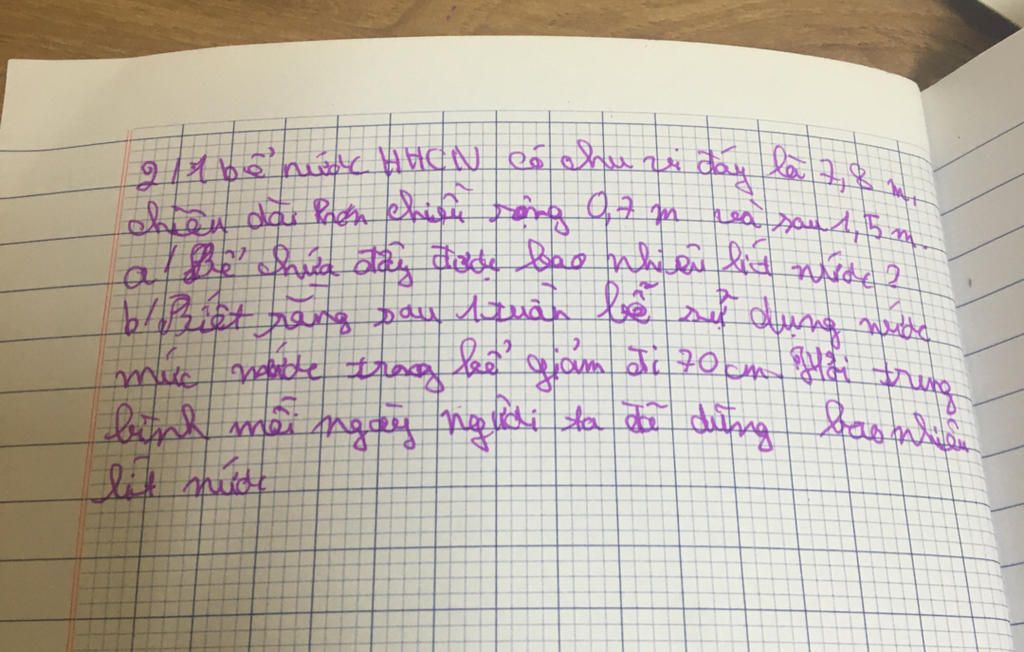 2/ 1 bể nước HHCN có chu vi đáy là 7,8 m,
chiều dài hơn chiều rộng 0,7 m và sau 1,5 m.
a/ Bể chứa đầy được bao nhiêu lít nước?
b/ Biết rằng sau 1 tuần lễ sử dụng nước
mức nước trong bể giảm đi 70 cm. Hỏi trung
bình mỗi ngày người ta đã dùng bao nhiêu
lít nước